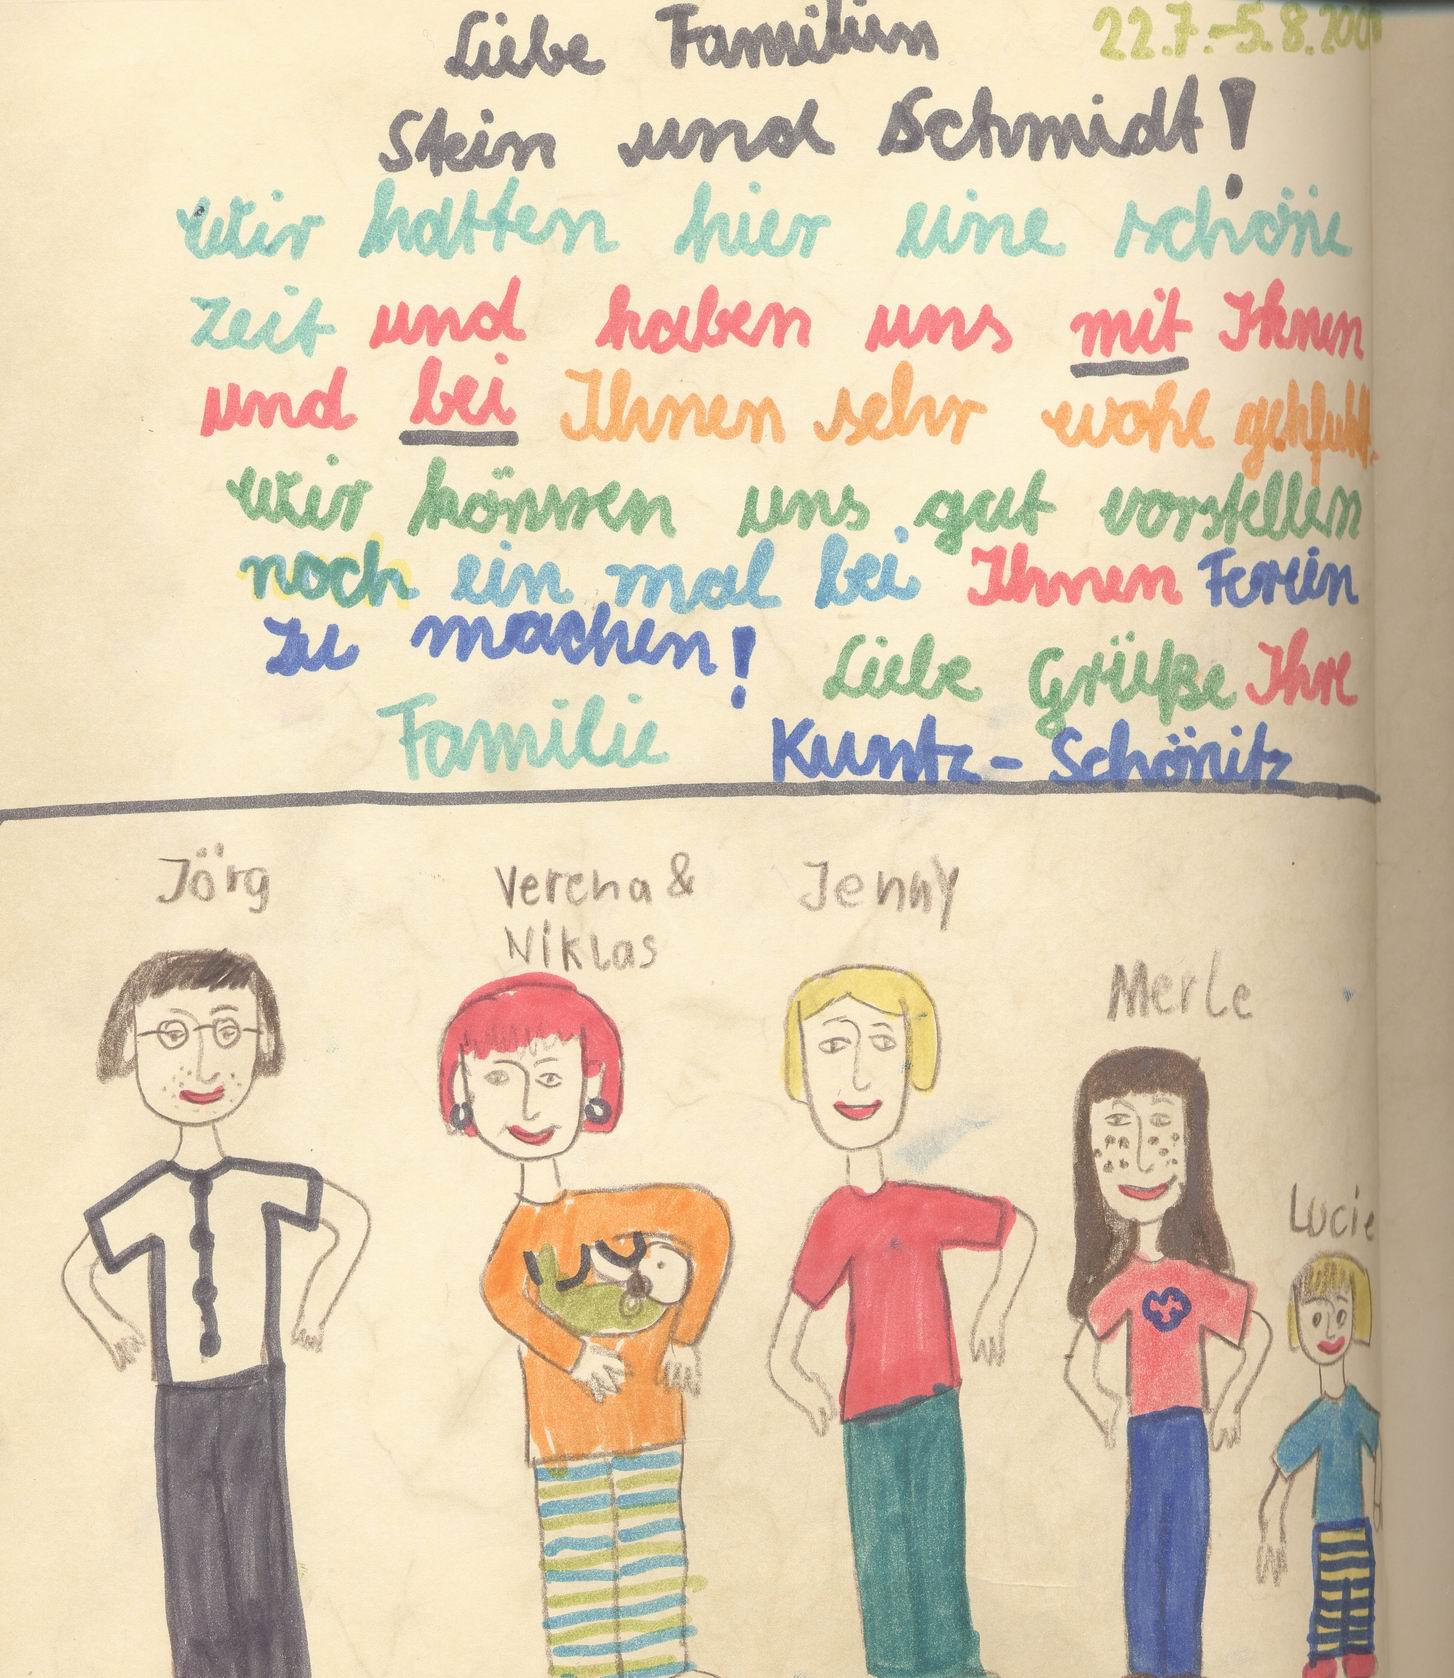 Liebe Familien
22.7.-5.8.200
Stein und Schmidt!
Wir hatten hier eine schöne
Zeit und haben uns mit Ihnen
und bei Ihnen sehr wohl gehfuhlt.
Wir können uns gut vorstellen
noch ein mal bei Ihnen Ferein
zu machen! Liebe Grüße Ihre
Familie Kuntz-Schönitz
Jörg
Verena &
Niklas
Jenny
Merle
Lucie